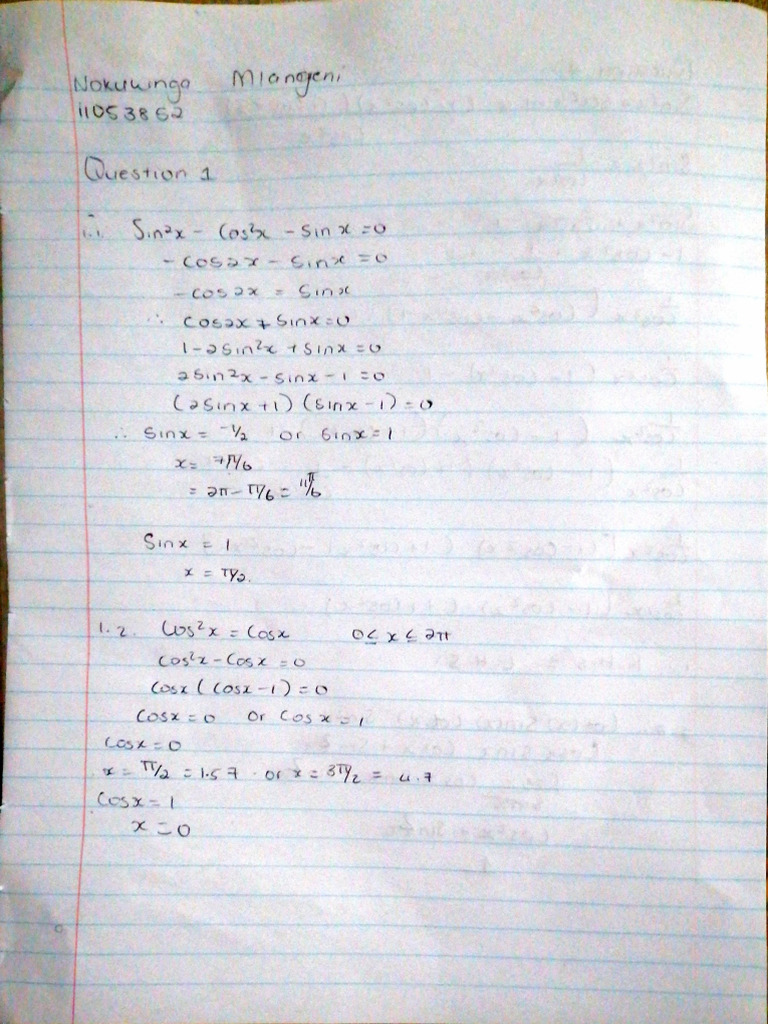 Nokuwinga Mlangeni
11053852
Question 1
1.1 Sin²x - Cos²x - Sin x = 0
- Cos2x - Sinx = 0
- cos2x = Sinx
∴ Cos2x + Sinx = 0
1 - 2Sin²x + Sinx = 0
2Sin²x - Sinx - 1 = 0
(2Sinx + 1) (Sinx - 1) = 0
∴ Sinx = -1/2 or Sinx = 1
x = 7π/6
= 2π - π/6 = 11π/6
Sinx = 1
x = π/2.
1.2. Cos²x = Cosx 0 ≤ x ≤ 2π
Cos²x - Cosx = 0
Cosx (Cosx - 1) = 0
Cosx = 0 Or Cosx = 1
Cosx = 0
x = π/2 = 1.57 or x = 3π/2 = 4.7
Cosx = 1
x = 0